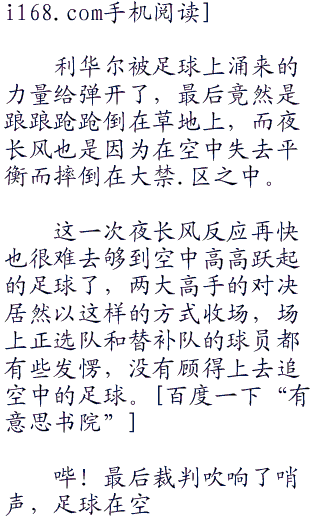 i168.com手机阅读]
利华尔被足球上涌来的
力量给弹开了，最后竟然是
踉踉跄跄倒在草地上，而夜
长风也是因为在空中失去平
衡而摔倒在大禁.区之中。
这一次夜长风反应再快
也很难去够到空中高高跃起
的足球了，两大高手的对决
居然以这样的方式收场，场
上正选队和替补队的球员都
有些发愣，没有顾得上去追
空中的足球。[百度一下“有
意思书院”]
哔！最后裁判吹响了哨
声，足球在空